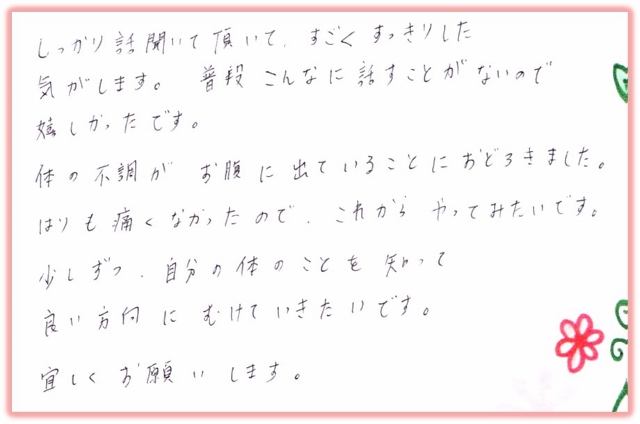 しっかり話聞いて頂いて、すごくすっきりした
気がします。 普段こんなに話すことがないので
嬉しかったです。
体の不調が お腹に出ていることにおどろきました。
はりも痛くなかったので、これから やってみたいです。
少しずつ、自分の体のことを 知って
良い方向に むけていきたいです。
宜しくお願いします。